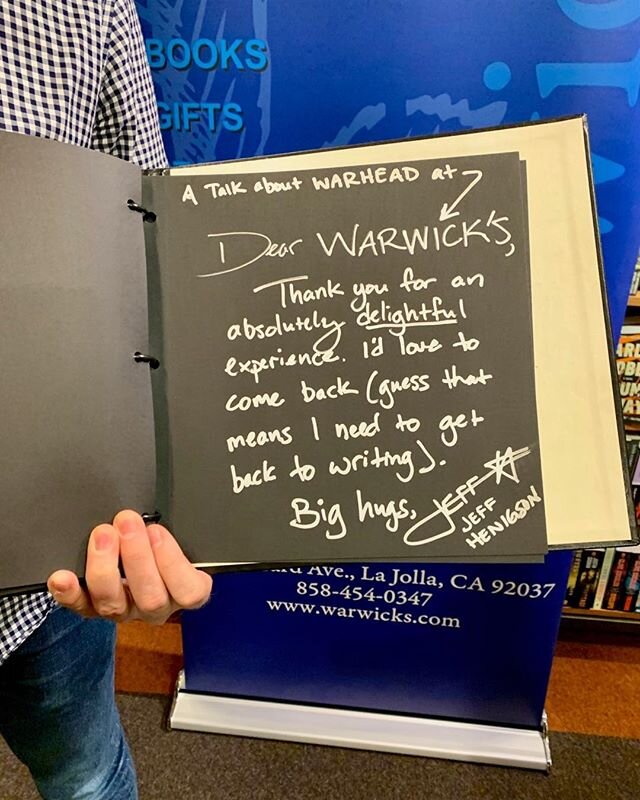 BOOKS
GIFTS
A Talk about WARHEAD at
Dear WARWICK'S,
Thank you for an
absolutely delightful
experience. I'd love to
come back (guess that
means I need to get
back to writing).
Big hugs, JEFF
JEFF
HENIGSON
Ave., La Jolla, CA 92037
858-454-0347
www.warwicks.com